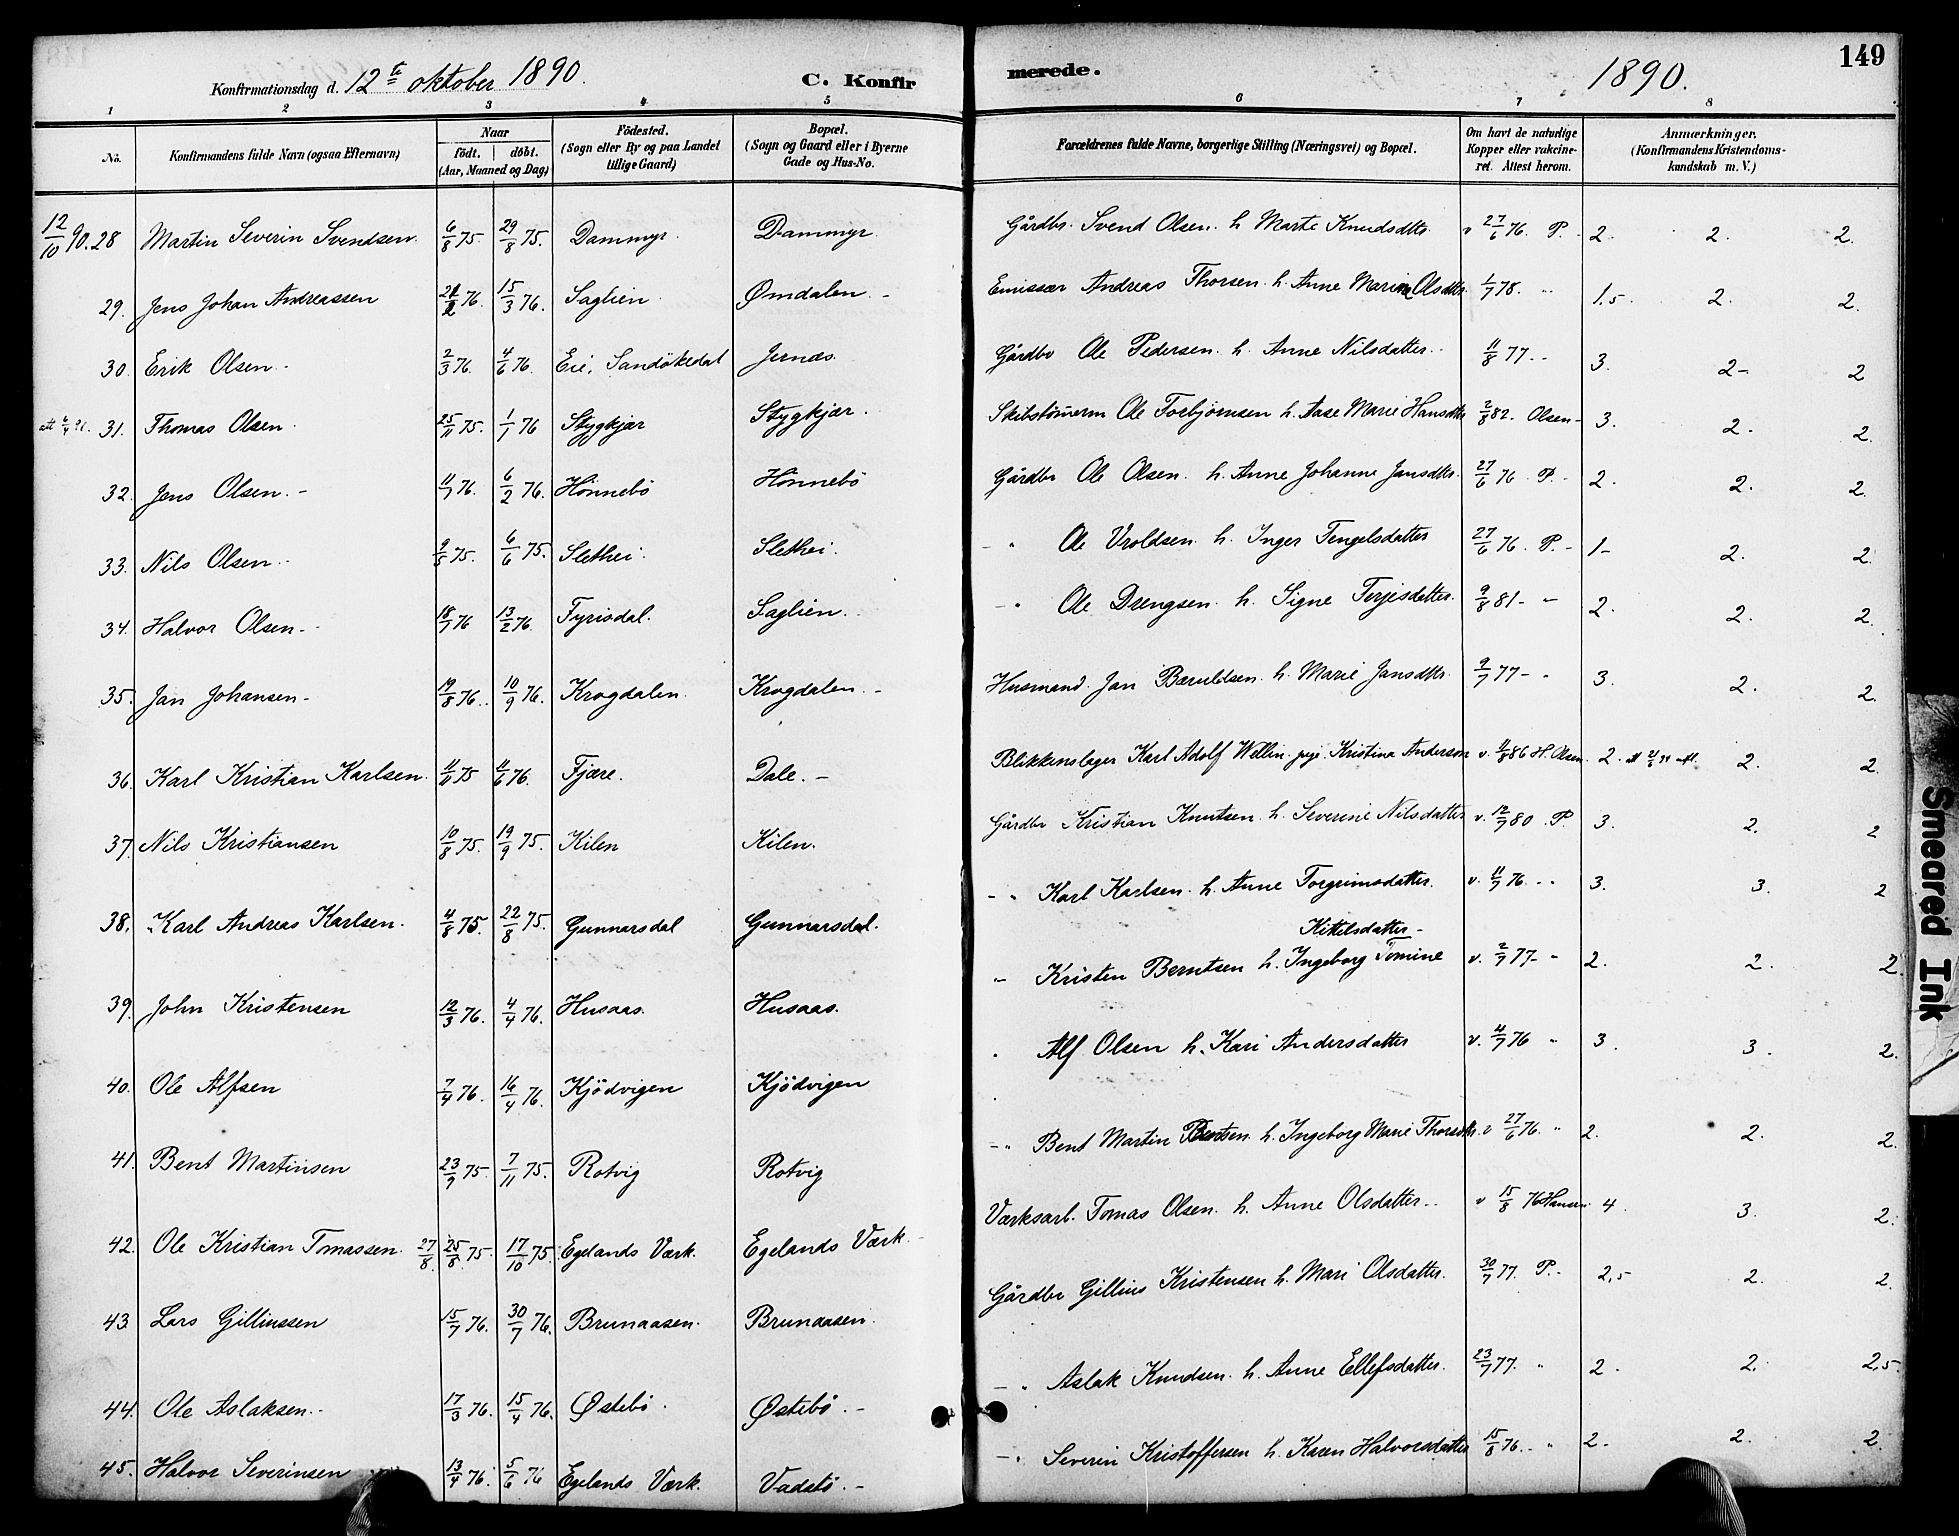 149
Konfirmationsdag d. 12te oktober 1890. C. Konfir
merede. 1890.
1 2 3 4 5 6 7 8
No.
Konfirmandens fulde Navn (ogsaa Efternavn)
Naar
födt. | döbt.
(Aar, Maaned og Dag)
Födested.
(Sogn eller By og paa Landet
tillige Gaard)
Bopæl.
(Sogn og Gaard eller i Byerne
Gade og Hus-No.
Forældrenes fulde Navne, borgerlige Stilling (Næringsvei) og Bopæl.
Om havt de naturlige
Kopper eller vakcine-
ret. Attest herom.
Anmærkninger.
(Konfirmandens Kristendoms-
kundskab m. V.)
12/10 90. 28 Martin Severin Svendsen. 6/8 75. 29/8 75. Dammyr. Dammyr. Gårdbr. Svend Olsen. h. Marte Knudsdtr. v 27/6 76. P. 2. 2. 2.
29. Jens Johan Andreassen 76. 15/3 76. Saglien. Ømdalen. - Emissær Andreas Thorsen. h. Anne Marine Olsdtr. 1/7 78. " 1.5. 2. 2.
30. Erik Olsen. - 2/3 76. 4/6 76. Eie, Sandökedal Jernæs. Gårdbr Ole Pedersen. h. Anne Nilsdatter. 11/8 77. - 3. 2- 2
31. Thomas Olsen. 25/11 75. 1/1 76 Stygkjær Stygkjær. Skibstömerm Ole Torbjörnsen h. Aase Marie Hansdtr 2/8 82. Olsen- 3. 2. 2.
32. Jens Olsen. - 76. 6/2 76. Hönnebö Hönnebö Gårdbr Ole Olsen. h. Anne Johanne Jansdtr. 27/6 76. P. - 2. 2. 2.
33. Nils Olsen. - 75. 6/6 75. Slethei. Slethei. - " Ole Vroldsen. h. Inger Tengelsdatter 27/6 76. P. - 1- 2. 2.
34. Halvor Olsen. - 76 13/2 76. Fyrisdal. Saglien. - " Ole Drengsen. h. Signe Terjesdatter. 9/8 81- " 2. 2. 2.
35. Jan Johansen - 19/8 76. 10/9 76. Krogdalen. Krogdalen. - Husmand. Jan Bæruldsen. h. Marie Jansdtr. 9/7 77- " 3. 2. 2.
36. Karl Kristian Karlsen. 11/11 75 11/6 76. Fjære. Dale. - Blikkenslager Karl Adolf Wellin. pige. Kristina Anderson v. 11/8 86 H. Olsen. 2. 2. 2.
37. Nils Kristiansen 10/8 75. 19/9 75. Kilen Kilen. Gårdbr Kristian Knutsen. h. Severine Nilsdatter v. 12/7 80. P. 3. 2. 2
38. Karl Andreas Karlsen. 4/8 75. 22/8 75. Gunnarsdal Gunnarsdal. - " Karl Karlsen. h. Anne Torgrimsdatter. v. 11/7 76. " 3. 3. 2
39. John Kristensen 12/3 76. 4/4 76. Husaas. Husaas. - Kristen Berntsen h. Ingeborg Tomine Kittelsdatter - v. 2/7 77- " 2. 2. 2.
40. Ole Alfsen 7/4 76. 16/4 76. Kjödvigen Kjödvigen " Alf Olsen h. Kari Andersdatter v. 4/7 76 " 3. 3. 2.
41. Bent Martinsen 23/9 75. 7/11 75. Rotvig Rotvig - " Bent Martin Bentsen. h. Ingeborg Marie Thorsdtr. v 27/6 76. " 2. 2. 2.
42. Ole Kristian Tomassen. 27/8. 25/8 75. 17/10 75. Egelands Værk. Egelands Værk. Værksarb. Tomas Olsen. h. Anne Olsdatter. - v 15/8 76 Hansen 4. 3. 2.
43. Lars Gilliussen 15/7 76. 30/7 76. Brunaasen. Brunaasen. Gårdbr Gillius Kristensen h. Mari Olsdatter. 30/7 77. P. - 2,5 2. 2.
44. Ole Aslaksen. - 17/3 76. 15/4 76. Østebö. Østebö. - - " Aslak Knudsen. h. Anne Ellefsdatter. 23/7 77. " 2. 2. 2,5
45. Halvor Severinsen 13/4 76. 5/6 76 Egelands Værk. Vadstö. - - " Severin Kristoffersen h. Karen Halvorsdatter 15/8 76. - " 2. 2. 2.
Smeared Ink